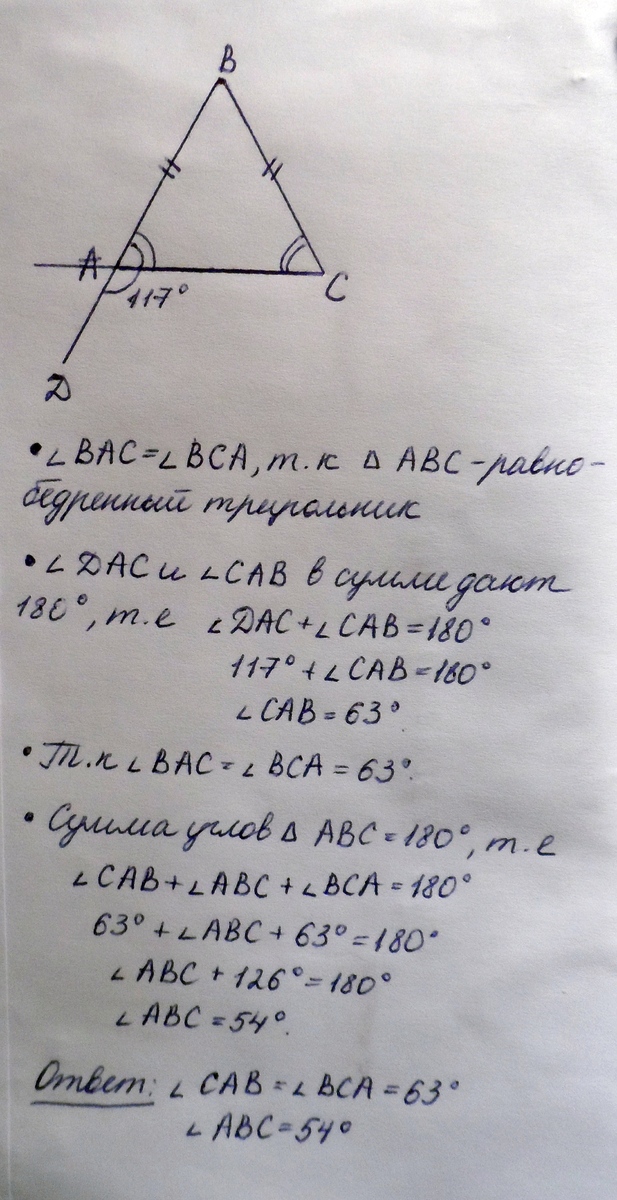 B
A
C
117°
D
• ∠ BAC = ∠ BCA, т.к Δ ABC - равно-
бедренный треугольник
• ∠ DAC и ∠ CAB в сумме дают
180°, т.е ∠ DAC + ∠ CAB = 180°
117° + ∠ CAB = 180°
∠ CAB = 63°.
• Т.к ∠ BAC = ∠ BCA = 63°.
• Сумма углов Δ ABC = 180°, т.е
∠ CAB + ∠ ABC + ∠ BCA = 180°
63° + ∠ ABC + 63° = 180°
∠ ABC + 126° = 180°
∠ ABC = 54°.
Ответ: ∠ CAB = ∠ BCA = 63°
∠ ABC = 54°